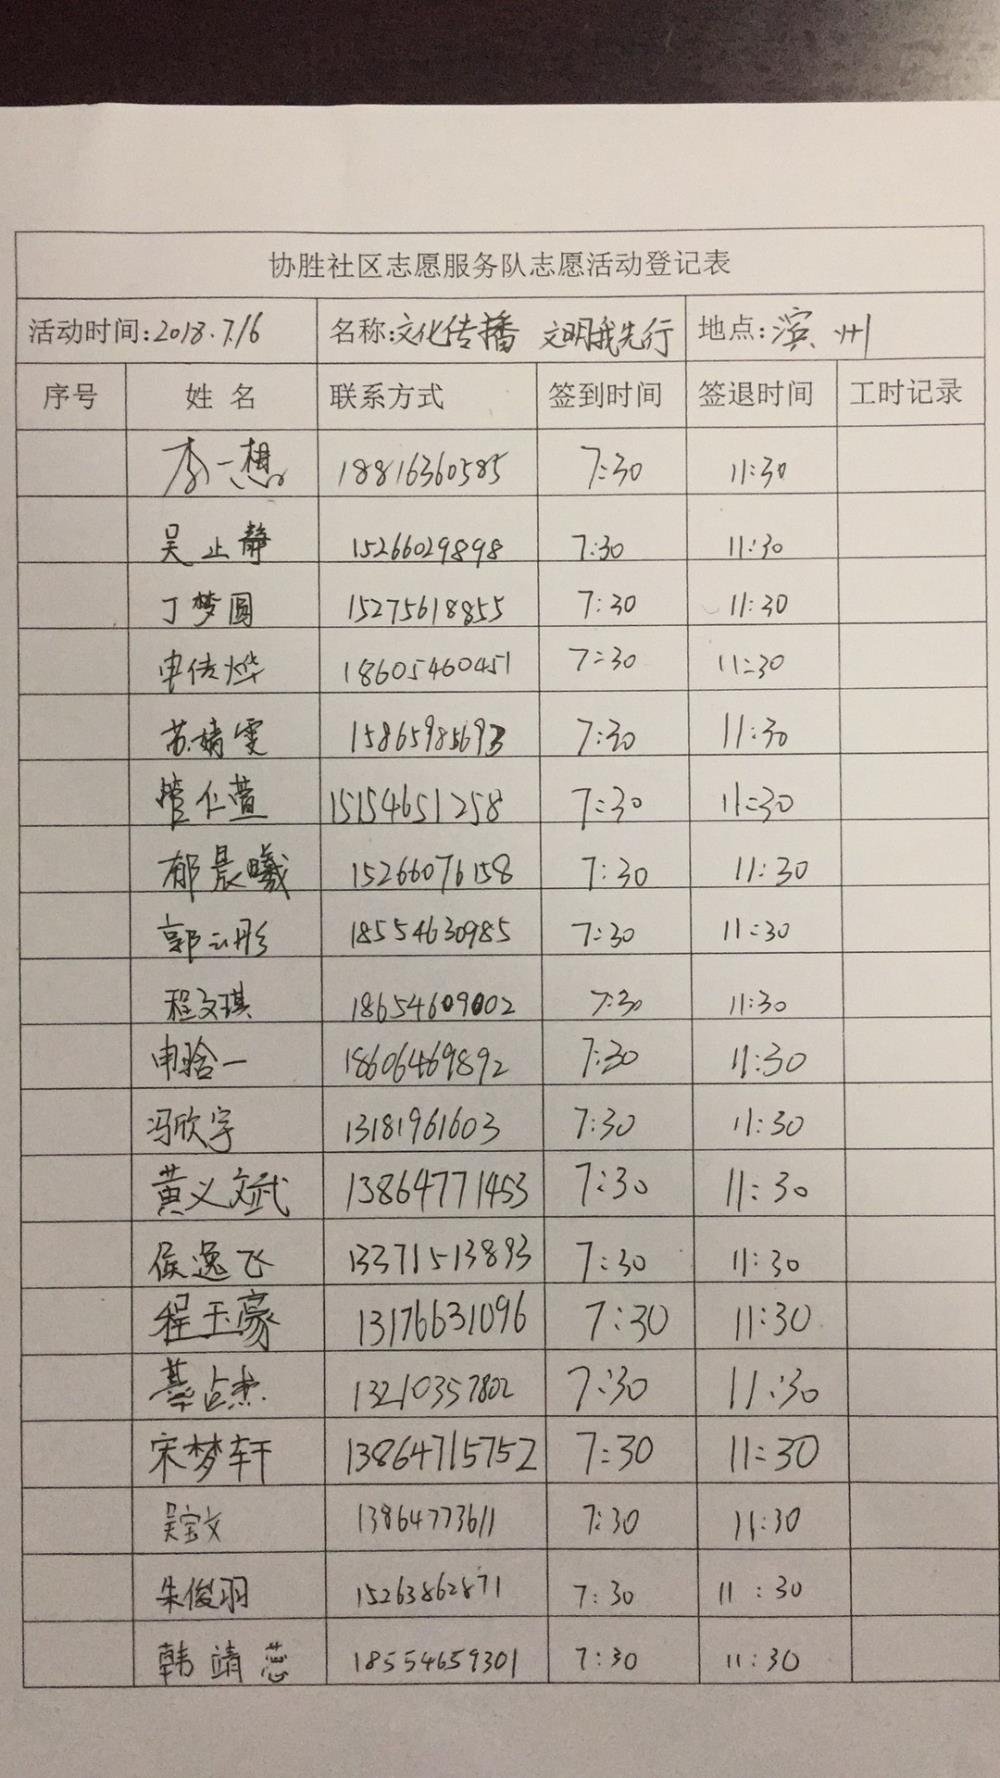 协胜社区志愿服务队志愿活动登记表
活动时间:2018.7.16 名称:文化传播 文明我先行 地点:滨州
序号 姓名 联系方式 签到时间 签退时间 工时记录
李一想 18816360585 7:30 11:30
吴止静 15266029898 7:30 11:30
丁梦圆 15275618855 7:30 11:30
申传烨 18605460451 7:30 11:30
苏婧雯 15865985693 7:30 11:30
管仁萱 15154651258 7:30 11:30
郁晨曦 15266076158 7:30 11:30
郭云彤 18554630985 7:30 11:30
程文琪 18654609002 7:30 11:30
申晗一 18606469892 7:30 11:30
冯欣宇 13181961603 7:30 11:30
黄义文武 13864771453 7:30 11:30
侯逸飞 13371513893 7:30 11:30
程玉豪 13176631096 7:30 11:30
綦占杰 13210357802 7:30 11:30
宋梦轩 13864715752 7:30 11:30
吴宝文 13864773611 7:30 11:30
朱俊羽 15263862871 7:30 11:30
韩靖 18554659301 7:30 11:30